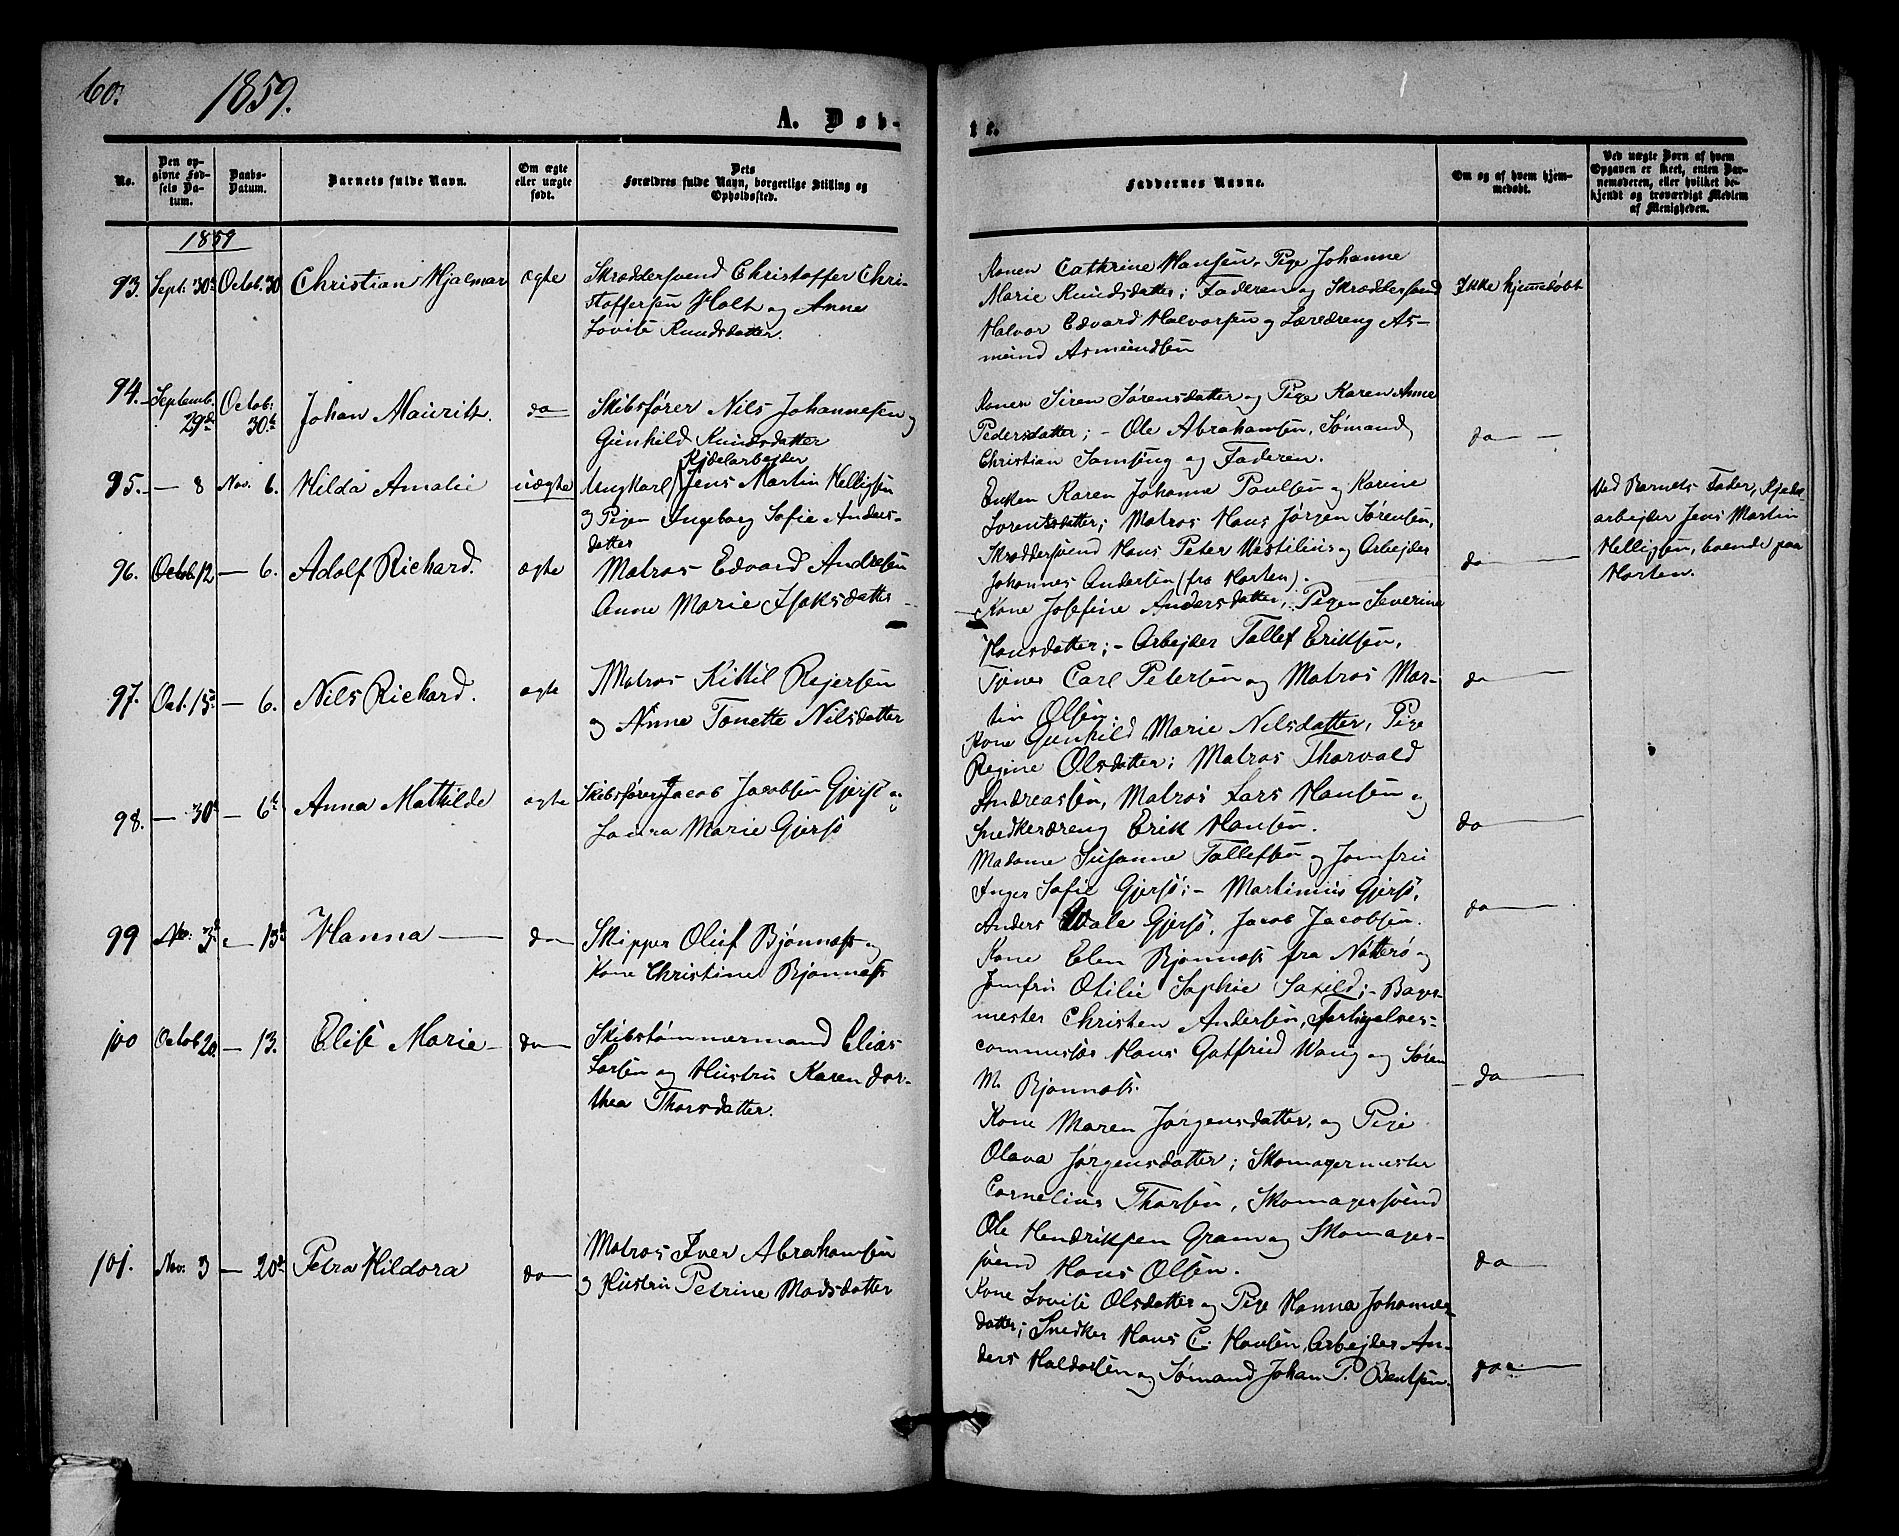 60.
1859.
A. Døb-
te.
No.
Den op-
givne Fød-
sels Da-
tum.
Daabs-
Datum.
Barnets fulde Navn.
Om ægte
eller uægte
født.
Dets
Forældres fulde Navn, borgerlige Stilling og
Opholdssted.
Faddernes Navne.
Om og af hvem hjem-
medøbt.
Ved uægte Børn af hvem
Opgaven er skeet, enten Bar-
nemoderen, eller hvilket be-
kjendt og troværdigt Medlem
af Menigheden.
1859
93. Sept: 30te Octob: 30 Christian Hjalmar ægte Skræddersvend Christoffer Chri-
stoffersen Holt og Anne
Lovise Knudsdatter.
Konen Cathrine Hansen, Pige Johanne
Marie Knudsdatter; Faderen og Skræddersvend
Halvor Edvard Halvorsen og Læredreng As-
mund Asmundsen
Ikke hjemedøbt
94. Septemb. 29de Octob: 30te Johan Mauritz. do Skibsfører Nils Johannesen og
Gunhild Knudsdatter
Konen Siren Sørensdatter og Pige Karen Anne
Pedersdatter; - Ole Abrahamsen, Sømand,
Christian Samsing og Faderen.
do
95. — 8 Nov: 6. Hilda Amalie uægte Ungkarl Kjedelarbejder Jens Martin Helligsen
og Pigen Ingeborg Sofie Anders-
datter
Enken Karen Johanne Paulsen og Karine
Lorentsdatter; Matros Hans Jørgen Sørensen,
Skræddersvend Hans Peter Westilius og Arbejder
Johannes Andersen (fra Horten).
do
Ved Barnets Fader, Kjedel-
arbejder Jens Martin
Helligsen, boende paa
Horten.
96. Octob 12 — 6. Adolf Richard. ægte Matros Edvard Andresen
Anne Marie Isaksdatter
Kone Josefine Andersdatter, Pigen Severine
Hansdatter; - Arbejder Tollef Eriksen,
Tjener Carl Petersen og Matros Mar-
tin Olsen
do
97. Oct. 15de — 6. Nils Richard. ægte Matros Kittil Rejersen
og Anne Tonette Nilsdatter
Kone Gunhild Marie Nilsdatter, Pige
Regine Olsdatter; Matros Thorvald
Andreassen, Matros Lars Hansen og
Snedkerdreng Erik Hansen.
do
98. — 30te — 6te Anna Mathilde ægte Skibsfører Jacob Jacobsen Gjersø og
Laura Marie Gjersø
Madame Susanne Tollefsen og Jomfru
Inger Sofie Gjersø; - Martinius Gjersø,
Anders Wale Gjersø, Jacob Jacobsen.
do
99 Nov: 3de — 13de Hanna do Skipper Oluf Bjønnæs og
Kone Christine Bjønnæs
Kone Elen Bjønnæs fra Nøtterø og
Jomfru Otilie Sophie Saxild; - Bager-
mester Christen Andersen,
Hans Gotfried Wang og Søren
M. Bjønnæs.
do
100 Octob 20. — 13. Elise Marie do Skibstømmermand Elias
Larsen og Hustru Karen Dor-
thea Thorsdatter.
Kone Maren Jørgensdatter, og Pige
Olava Jørgensdatter; Skomagermester
Cornelius Thorsen, Skomagersvend
Ole Hendriksen Gram og Skomager-
svend Hans Olsen.
do
101. Nov: 3 — 20de Petra Hildora do Matros Iver Abrahamsen
og Hustru Petrine Madsdatter
Kone Lovise Olsdatter og Pige Hanna Johannes-
datter; Snedker Hans C. Hansen, Arbejder An-
ders Haldorsen og Sømand Johan P. Bentsen.
do